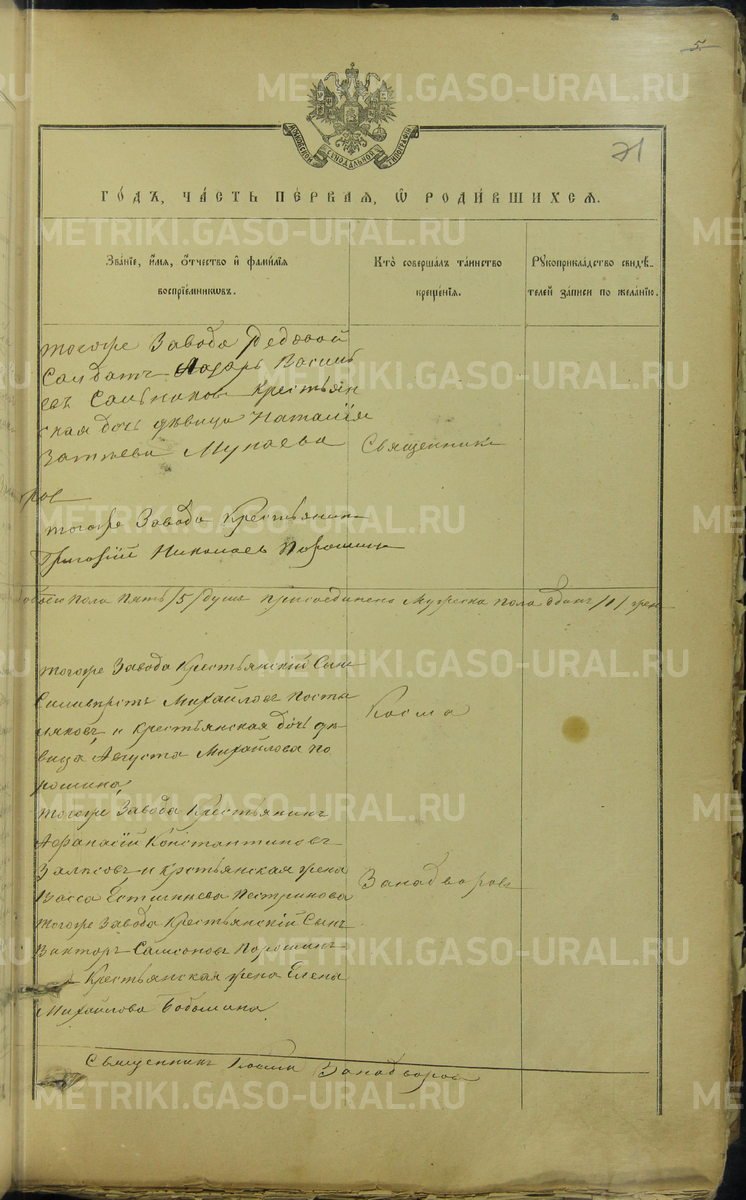 5.
METRIKI.GASO-URAL.RU
71
ДУХОВСКОЙ КОНСИСТОРСКОЙ ТИПОГРАФІИ
ГО́ДЪ, ЧА́СТЬ ПЕ́РВАЯ, Ѡ РОДИ́ВШИХСЯ.
Зва́нїе, и҆́мѧ, ѻ҆́тчество и҆ фами́лїѧ
воспрїе́мниковъ.
Кто̀ соверша́лъ та́инство
креще́нїѧ.
Рꙋкоприкла́дство свидѣ́-
телей за́писи по жела́нїю.
тогоже Завода Рядовой
Солдатъ Лазарь Василь
евъ Сальников Крестьян
ская дочь дѣвица Наталія
Мунаева
Священникъ
тогоже Завода Крестьянинъ
Григорій Николаевъ Порошинъ
обоего пола пять /5/ душъ присоединено Мужеска пола Одинъ /1/ жен
тогоже Завода Крестьянскій Сынъ
Силиверстъ Михайловъ Посты
ляковъ и Крестьянская дочь дѣ
вица Августа Михайлова По
рошина,
Косма
тогоже Завода Крестьянинъ
Афанасій Константиновъ
и Крстьянская жена
Васса Естигнѣева Пестрикова
Занадворовъ
тогоже Завода Крестьянскій Сынъ
Викторъ Самсоновъ Порошинъ
и Крестьянская жена Елена
Михайлова Бабошина
Священникъ Косма Занадворов